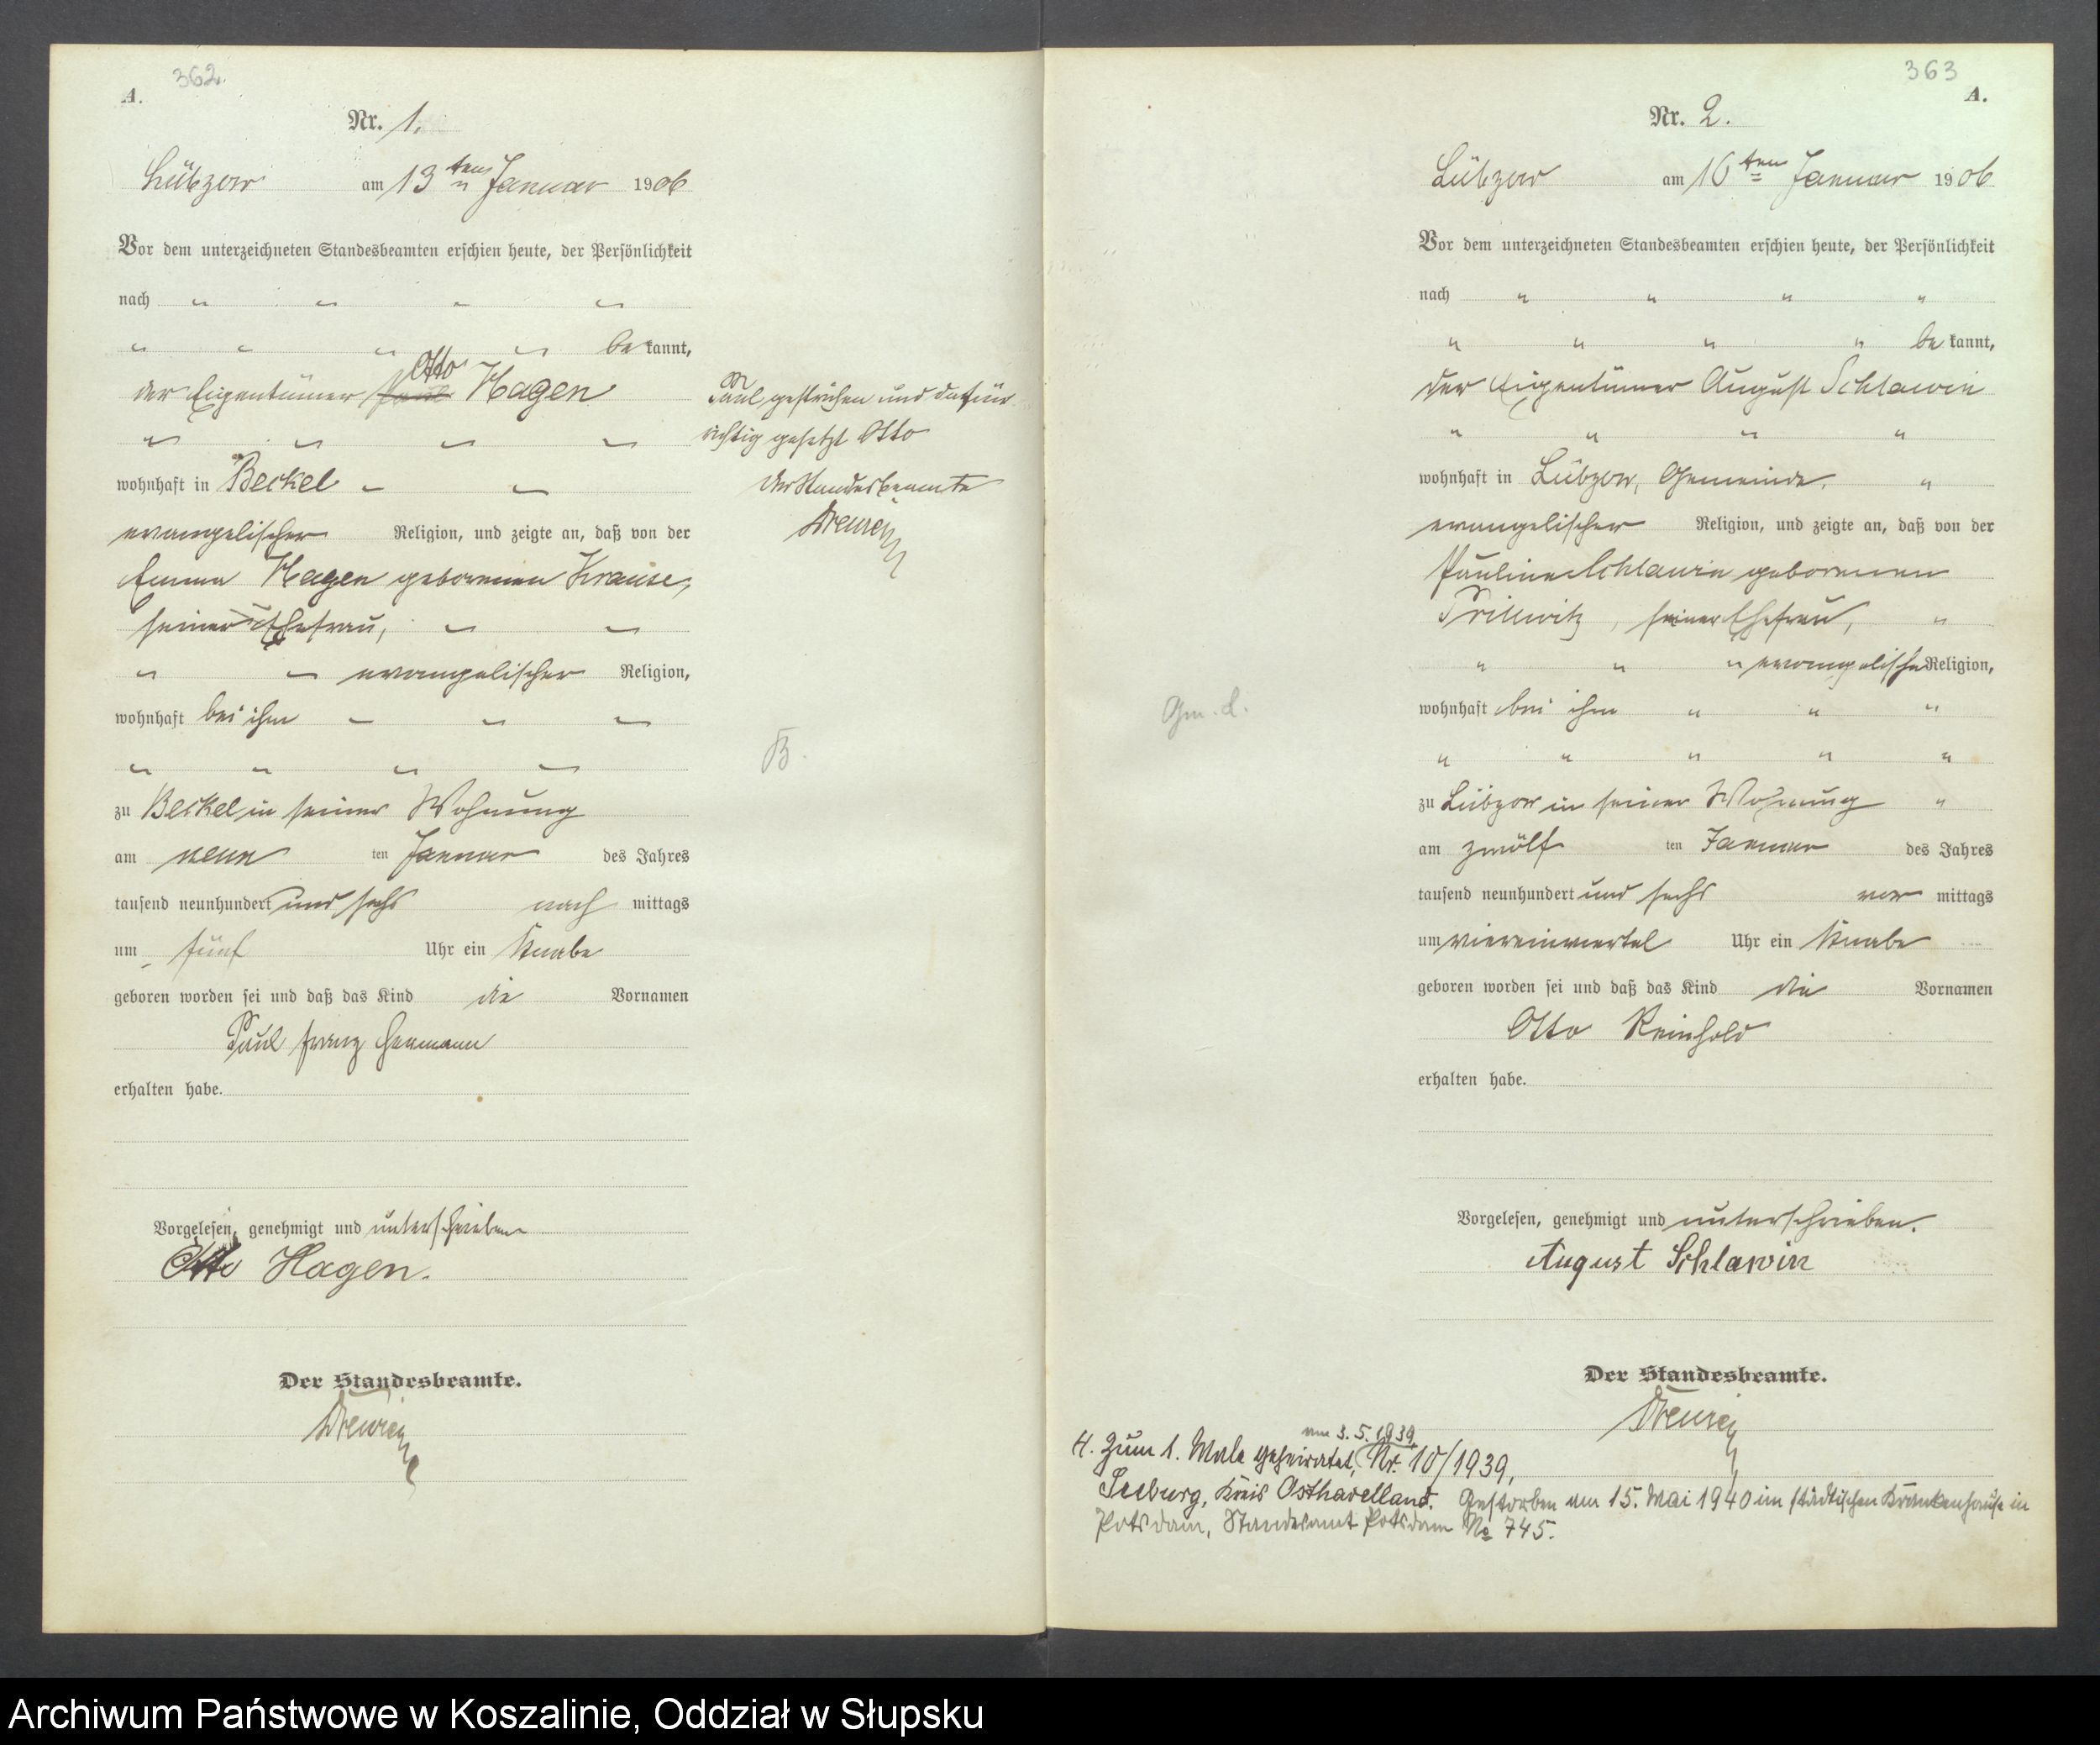 362.
A.
Nr. 1.
Lübzow am 13ten Januar 1906
Vor dem unterzeichneten Standesbeamten erschien heute, der Persönlichkeit
nach " " " "
" " " " bekannt,
Otto
der Eigentümer Paul Hagen
" " " "
wohnhaft in Beckel " "
evangelischer Religion, und zeigte an, daß von der
Emma Hagen geborenen Krause,
seiner Ehefrau, " "
" " evangelischer Religion,
wohnhaft bei ihm " " "
" " " "
zu Beckel in seiner Wohnung
am neun ten Januar des Jahres
tausend neunhundert und sechs nach mittags
um fünf Uhr ein Knabe
geboren worden sei und daß das Kind die Vornamen
Paul Franz Hermann
erhalten habe.
Vorgelesen, genehmigt und unterschrieben
Otto Hagen.
Der Standesbeamte.
Paul gestrichen und dafür
richtig gesetzt Otto
Der Standesbeamte
B.
363
A.
Nr. 2.
Lübzow am 16ten Januar 1906
Vor dem unterzeichneten Standesbeamten erschien heute, der Persönlichkeit
nach " " " "
" " " " bekannt,
der Eigentümer August Schlawin
" " " "
wohnhaft in Lübzow, Gemeinde, "
evangelischer Religion, und zeigte an, daß von der
Pauline Schlawin geborenen
Prillwitz, seiner Ehefrau, "
" " " evangelischer Religion,
wohnhaft bei ihm " " "
" " " " "
zu Lübzow in seiner Wohnung "
am zwölf ten Januar des Jahres
tausend neunhundert und sechs vor mittags
um viereinviertel Uhr ein Knabe
geboren worden sei und daß das Kind die Vornamen
Otto Reinhold
erhalten habe.
Vorgelesen, genehmigt und unterschrieben.
August Schlawin
Der Standesbeamte.
am 3. 5. 1939
H. Zum 1. Male geheiratet, Nr. 10/1939,
Seeburg, Kreis Osthavelland. Gestorben am 15. Mai 1940 im städtischen Krankenhause in
Potsdam, Standesamt Potsdam No 745.
Archiwum Państwowe w Koszalinie, Oddział w Słupsku